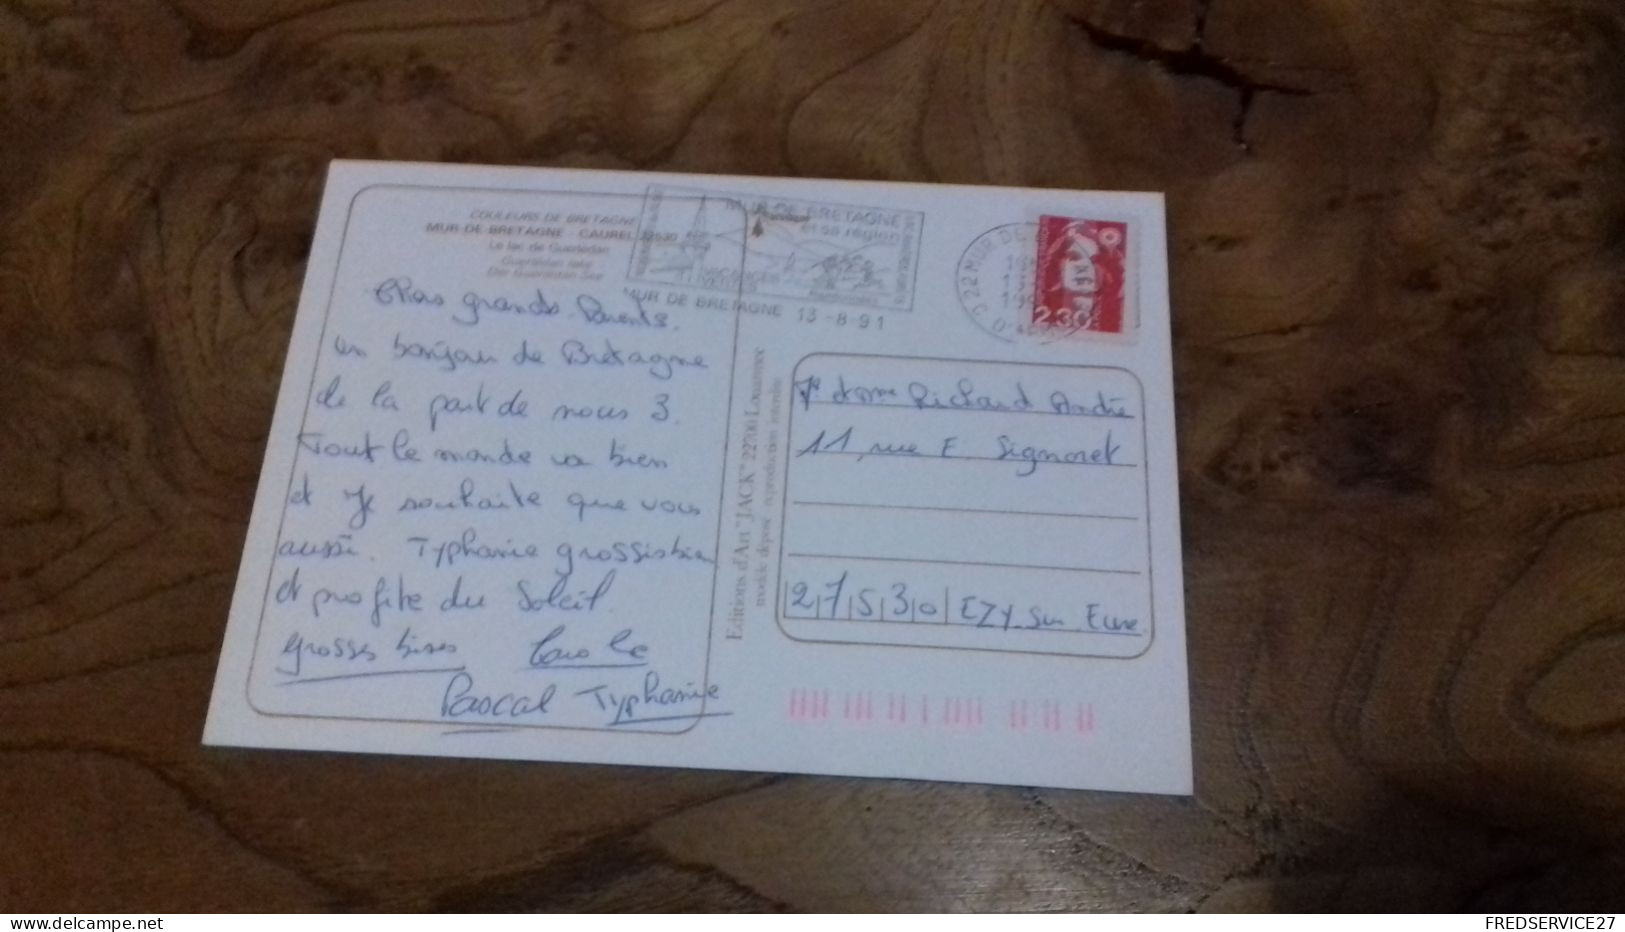 COULEURS DE BRETAGNE
MUR DE BRETAGNE - CAUREL 22530
Le lac de Guerlédan
Guerlédan lake
Der Guerlédan See
MUR DE BRETAGNE
et sa région
VACANCES
VERTES
Randonnées
MUR DE BRETAGNE 13-8-91
22 MUR DE
2,30
Chers grands Parents.
un bonjour de Bretagne
de la part de nous 3.
Tout le monde va bien
et je souhaite que vous
aussi. Typhanie grossis bien
et profite du Soleil.
grosses bises Carole
Pascal Typhanie
Editions d'Art "JACK" 22700 Louannec
modèle déposé reproduction interdite
Mr et Mme Richard André
11, rue F. Signoret
27530 EZY-sur-Eure
delcampe.net
FREDSERVICE27